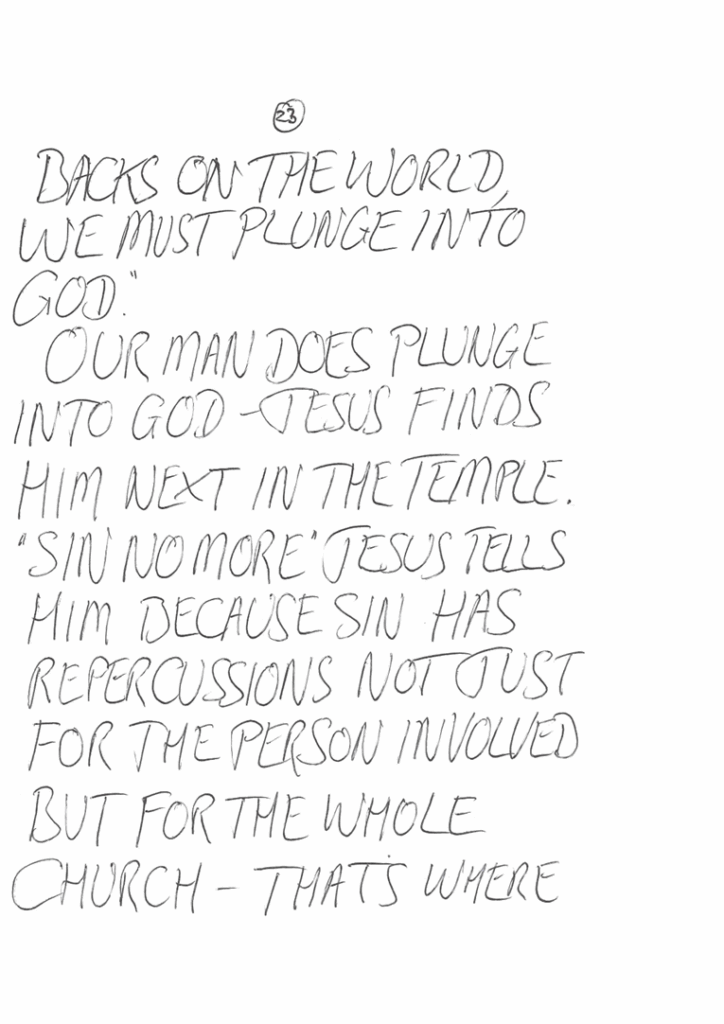 23
BACKS ON THE WORLD,
WE MUST PLUNGE INTO
GOD."
OUR MAN DOES PLUNGE
INTO GOD - JESUS FINDS
HIM NEXT IN THE TEMPLE.
"SIN NO MORE" JESUS TELLS
HIM BECAUSE SIN HAS
REPERCUSSIONS NOT JUST
FOR THE PERSON INVOLVED
BUT FOR THE WHOLE
CHURCH - THAT'S WHERE